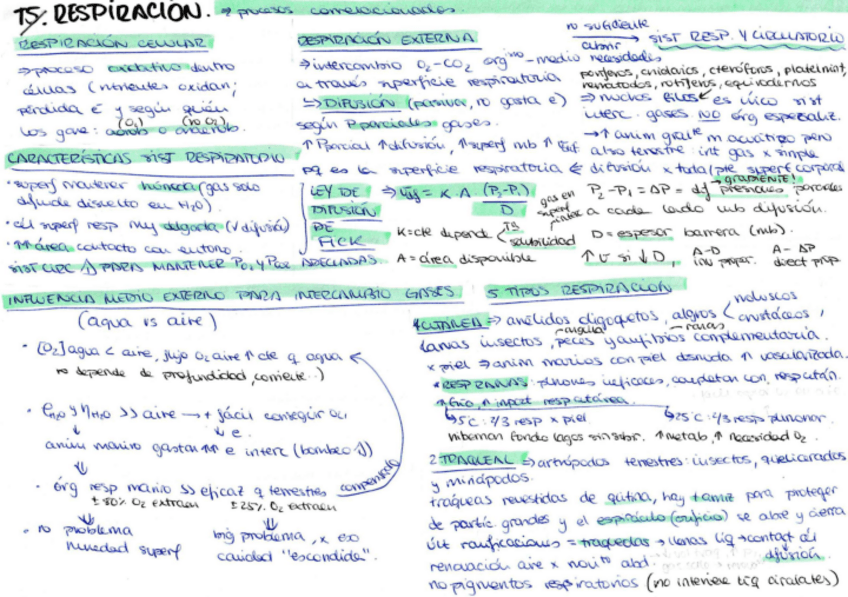 T5. RESPIRACIÓN. → procesos correlacionados.
RESPIRACIÓN CELULAR
⇒ proceso oxidativo dentro
células (nutrientes oxidan;
pérdida é y según quién
(O₂) (no O₂)
los gane: aerob o anaerob.
CARACTERÍSTICAS SIST RESPIRATORIO
· superf mantener húmeda (gas solo
difunde disuelto en H₂O).
· cél superf resp muy delgada (V difusión)
· ↑↑ área contacto con entorno.
SIST CIRC PARA MANTENER PO₂ Y PCO₂ ADECUADAS.
RESPIRACIÓN EXTERNA
⇒ intercambio O₂-CO₂ orgⁿᵒ-medio
a través superficie respiratoria
↳ DIFUSIÓN (pasiva, no gasta e)
según P parciales gases.
↑ Pparcial ↑ difusión, ↑ superf mb ↑ dif.
no suficiente
cubrir necesidades → SIST RESP. Y CIRCULATORIO
poríferos, cnidarios, ctenóforos, platelmint,
nematodos, rotíferos, equinodermos
⇒ muchos filos es único sist
interc. gases NO órg especializ.
→ ↑ anim grande m acuático pero
also terrestre: int gas x simple
pq es la superficie respiratoria ⇐ difusión x toda (pte superf corporal
LEY DE DIFUSIÓN DE FICK ⇒ Vdif = K · A · (P₂-P₁) / D
gas en superf
K = cte depende < Tª solubilidad
A = área disponible
→ GRADIENTE!
P₂ - P₁ = ΔP = dif presiones parciales
a cada lado mb difusión.
D = espesor barrera (mb).
↑ V si ↓ D, A-D inv propor. A-ΔP direct prop.
INFLUENCIA MEDIO EXTERNO PARA INTERCAMBIO GASES
(agua vs aire)
· [O₂] agua < aire, flujo O₂ aire ↑ cte q agua
no depende de profundidad, corriente..)
· ρH₂O y ηH₂O >> aire → + fácil conseguir O₂,
↓ e.
anim marino gastan ↑↑ e interc (bombeo)
· órg resp marino >> eficaz q terrestres compensado
± 80% O₂ extraen ± 25% O₂ extraen
· no problema
humedad superf
big problema, x eso
cavidad "escondida".
5 TIPOS RESPIRACIÓN
1 CUTÁNEA ⇒ anélidos oligoquetos, algros < moluscos crustáceos,
larvas insectos, peces - anguila y anfibios - ranas complementaria.
x piel ⇒ anim marinos con piel desnuda ↑ vascularizada.
* RESP RANAS: pulmones ineficaces, completan con resp cután.
↑ frío, ↑ import resp cutánea.
↳ 5°C: 2/3 resp x piel.
hibernan fondo lagos sin subir.
↳ 25°C: 2/3 resp pulmonar.
↑ metab, ↑ necesidad O₂.
2 TRAQUEAL ⇒ artrópodos terrestres: insectos, quelicerados
y miriápodos.
tráqueas revestidas de quitina, hay tamiz para proteger
de partíc. grandes y el espiráculo (orificio) se abre y cierra
últ ramificaciones = traqueolas → llenas líq → contact cél
difusión.
renovación aire x movᵗᵒ abd.
no pigmentos respiratorios (no interviene líq circulates)